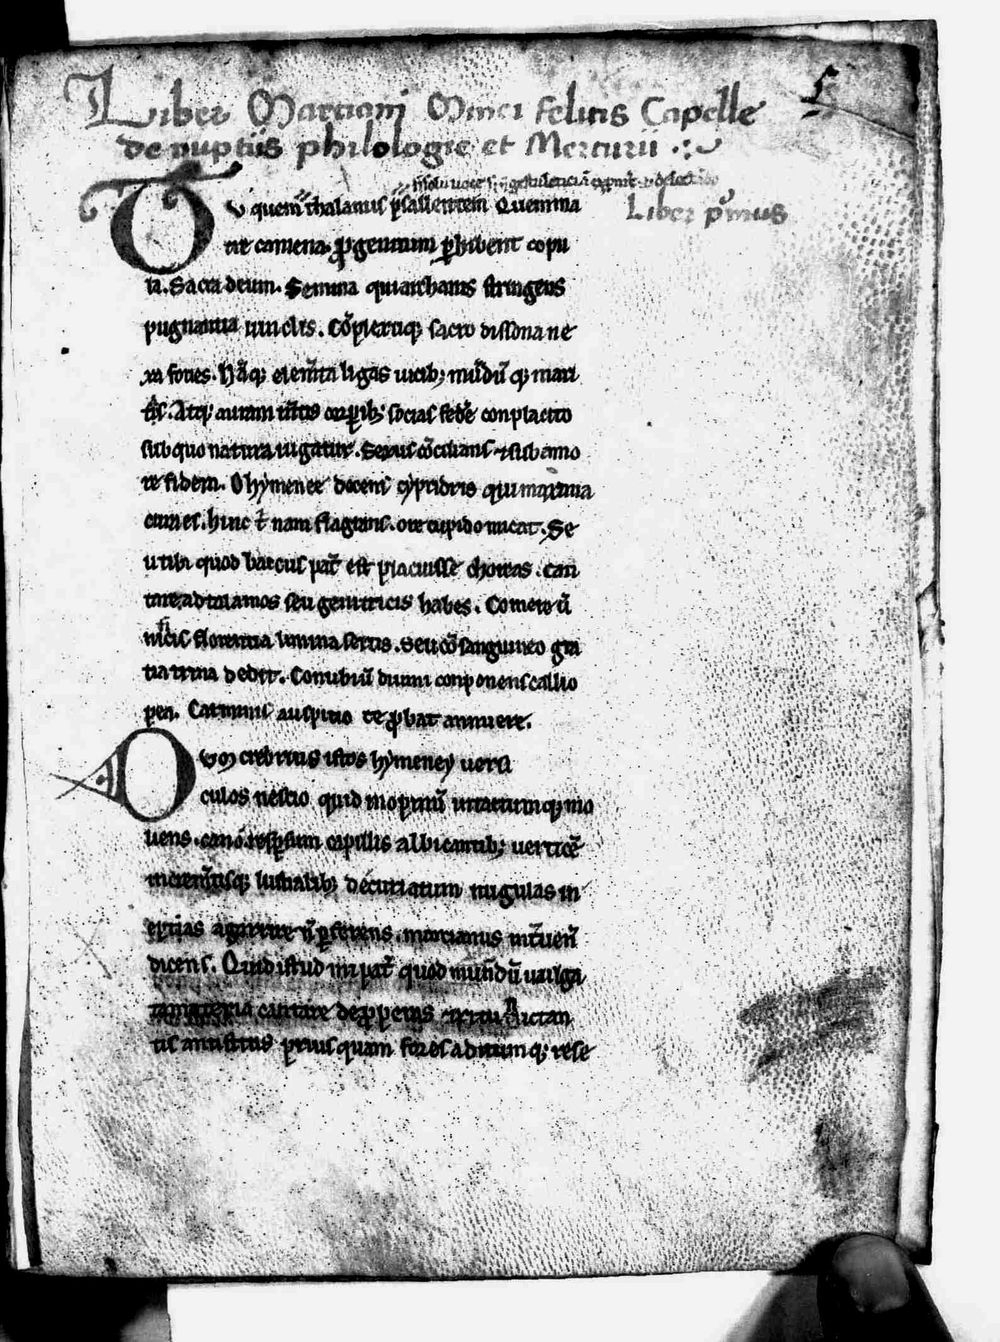 Liber Marciani Minei felicis Capelle
de nuptiis philologie et Mercurii
5
Liber p'mus
Tu quem thalamis psallentem Quem ma
tre camena. progenitum perhibent copu
la. Sacra deum. Semina qui archanis stringens
pugnantia vinclis. Cōplexuq; sacro dissona ne
xa foves. Nāq; elem̄ta ligas vicib; mūdū q; mari
tas. Atq; auram m̄tis corporib; socias federe conplacito
sub quo natura iugatur. Sexus cōcilians et sub amo
re fidem. O hymenee decens cypridis qui maxima
cura es. hinc t̄ nam flagrans. ore cupido micat. Se
u tibi quod bacus pat̄ est placuisse choreas. can
tare ad talamos seu genitricis habes. Comere ū
nis florentia limina sertis. Seu cōsanguineo gra
tia trina dedit. Conubiū divum conponens callio
pea. Carminis auspitio te probat annuere.
Dum crebrius istos hymeney versi
culos nescio quid inopinū intactumq; mo
vens. canō respersum capillis albicantib; verticē
increm̄tisq; lustralib; decuriatum nugulas in
eptias agarrire n̄ perferens. marcianus int̄ven̄
dicens. Quid istud mi pat̄ quod nūdū vulga
ta materia cantare deproperas et ritu dictan
tis antistitis prius quam fores aditumq; rese